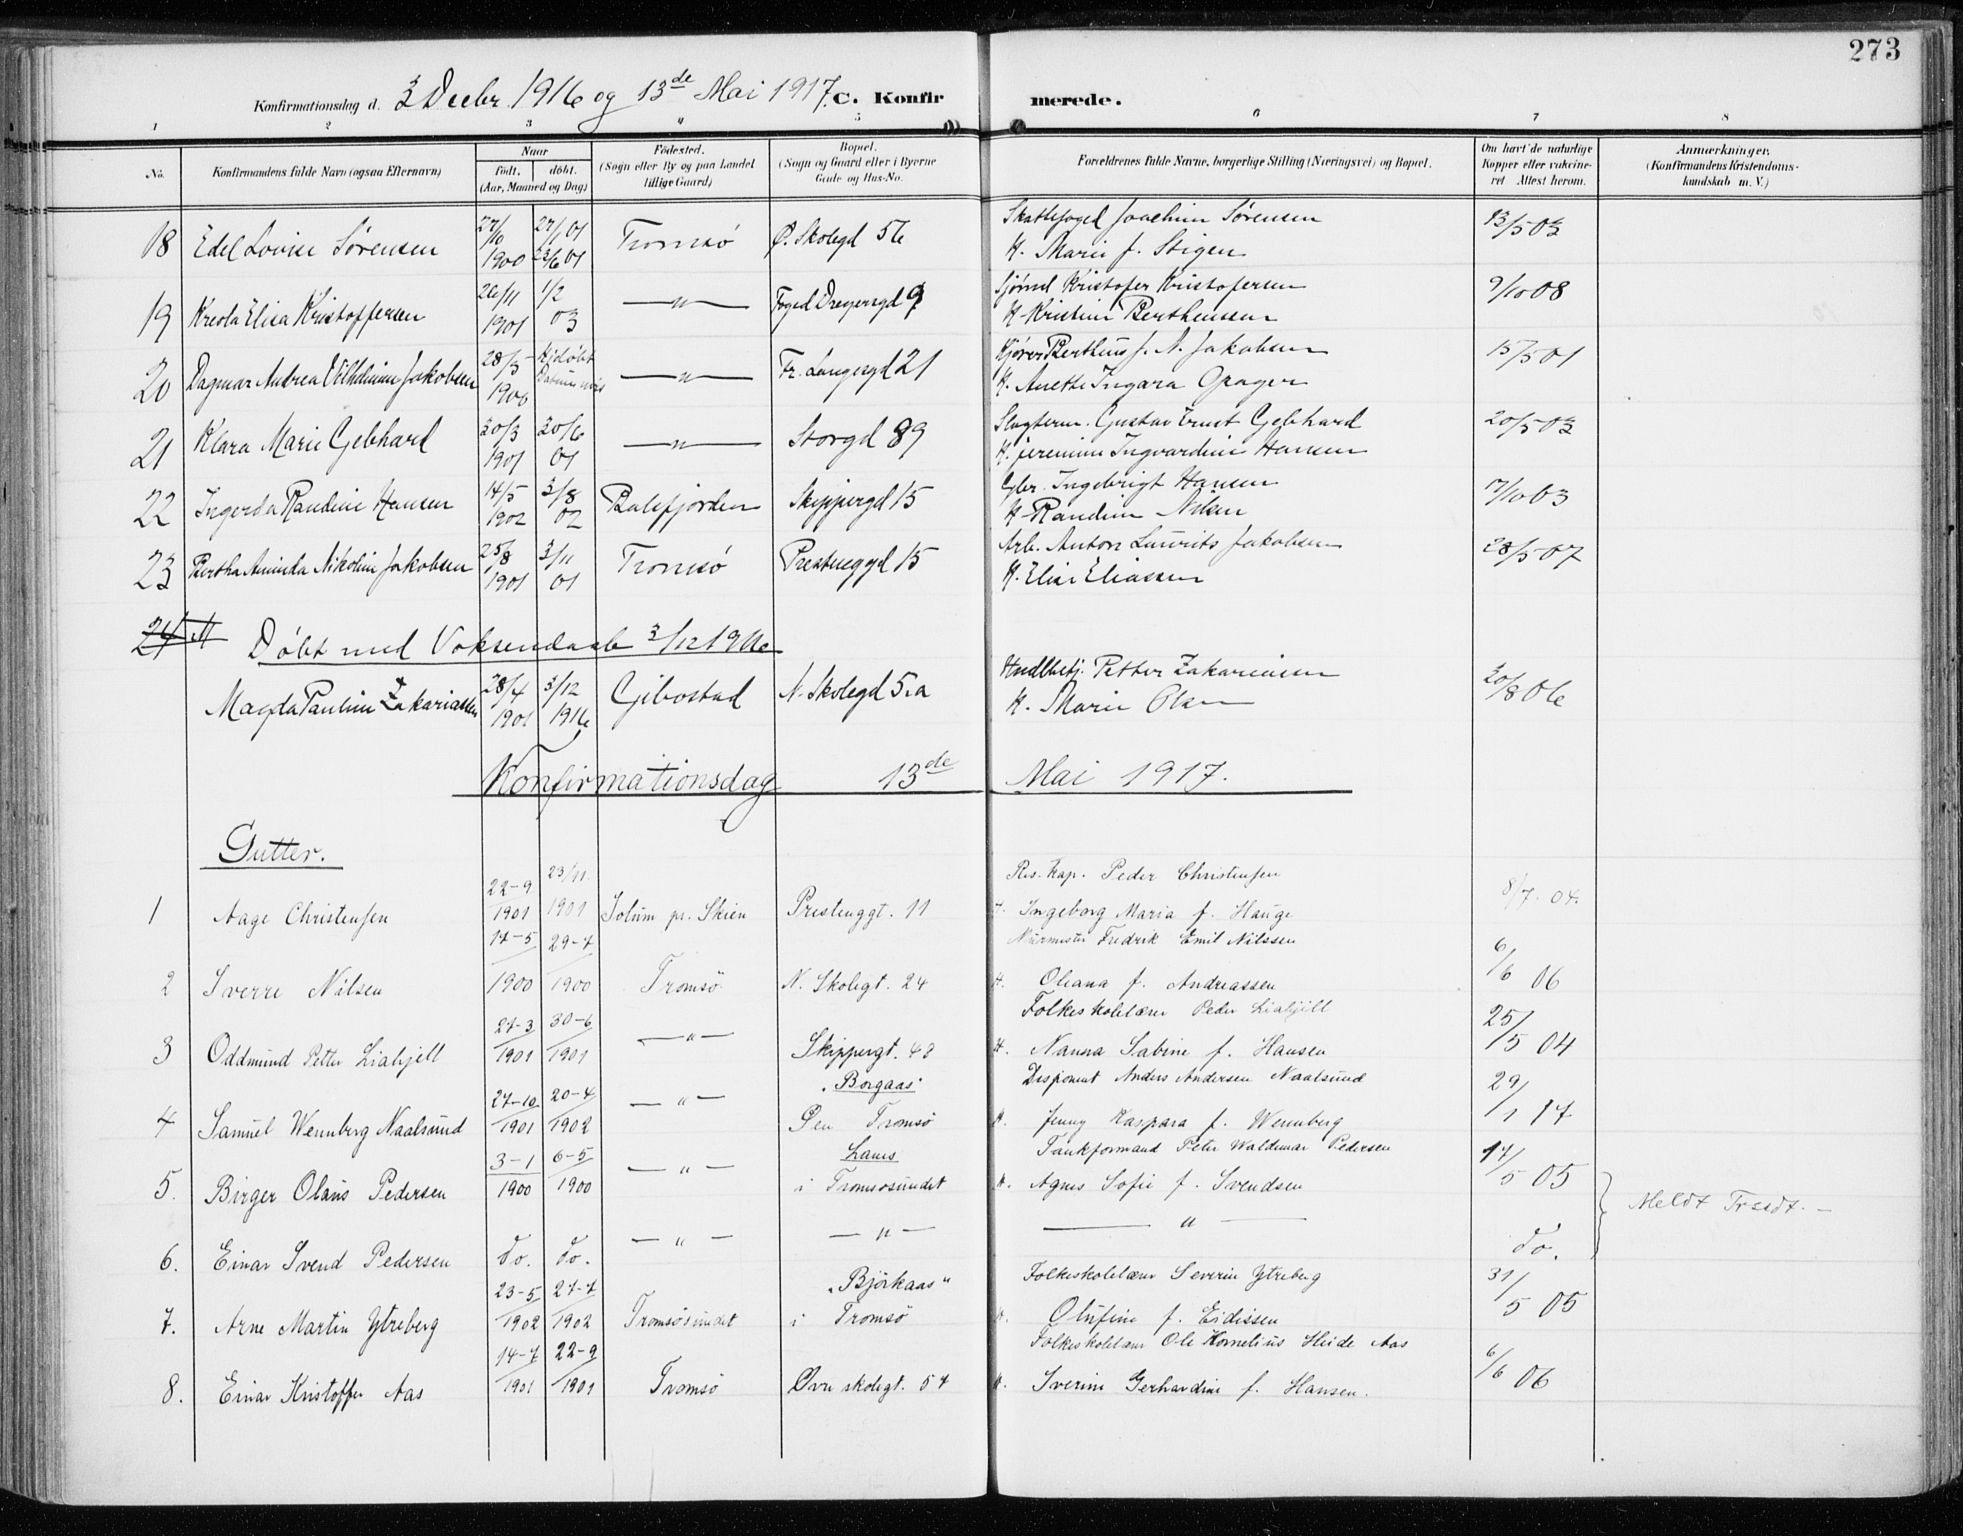 273
Konfirmationsdag d. 3 Decbr. 1916 og 13de Mai 1917. C. Konfirmerede.
1 2 3 " 5 6 7 8
No. Konfirmandens fulde Navn (ogsaa Efternavn) Naar født. døbt. (Aar, Maaned og Dag) Fødested. (Sogn eller By og paa Landet tillige Gaard) Bopæl. (Sogn og Gaard eller i Byerne Gade og Hus-No. Forældrenes fulde Navne, borgerlige Stilling (Næringsvei) og Bopæl. Om havt de naturlige Kopper eller vaksineret Attest herom. Anmærkninger. (Konfirmandens Kristendomskundskab m. V.)
27/10 27/1 01 Skattefoged Joachim Sørensen 13/5 03
18 Edel Lovise Sørensen 1900 23/6 01 Tromsø Ø. Skolegd 56 H. Marie f. Stigen
26/11 1/2 Sjømd Kristofer Kristofersen 9/10 08
19 Kreola Elisa Kristoffersen 1901 03 —"— Foged Dreyersgd 9 H. Kristine Berthensen
28/5 Hjdøbt Kjører Berthus J. N. Jakobsen 15/5 01
20 Dagmar Andrea Vilhelmine Jakobsen 1900 Datum —"— Fr. Langesgd 21 H. Anette Ingara
20/3 20/6 Slagterm. Gustav Ernst Gebhard 20/5 03
21 Klara Marie Gebhard 1901 01 —"— Storgd 89 H. Jeremine Ingvardine Hansen
14/5 3/8 Gbr. Ingebrigt Hansen 7/10 03
22 Ingerda Randine Hansen 1902 02 Balsfjorden Skippergd 15 H. Randine Nilsen
25/8 3/11 Arb. Anton Laurits Jakobsen 28/5 07
23 Bertha Aminda Nikoline Jakobsen 1901 01 Tromsø Prestenggd 15 H. Elise Eliassen
24
Døbt med Voksendaab 3/12 1916
28/4 3/12 Handlbetj. Petter Zakariassen 30/8 06
Magda Pauline Zakariassen 1901 1916 Gibostad N. Skolegd 5.a H. Marie Olsen
Konfirmationsdag 13de Mai 1917.
Gutter.
22-9 23/11 Res. Kap. Peder Christensen 8/7. 04.
1 Aage Christensen 1901 1901 Solum pr. Skien Prestenggt. 11 H. Ingeborg Maria f. Hauge
17-5 29-7 Murmester Fredrik Emil Nilssen 6/6 06
2 Sverre Nilsen 1900 1900 Tromsö N. Skolegt. 24 H. Oleana f. Andreassen
27-3 30-6 Folkeskolelærer Peder Liahjell 25/5 04
3 Oddmund Petter Liahjell 1901 1901 —"— Skippergt. 48 H. Nanna Sabine f. Hansen
27-10 20-4 "Borgaas" Disponent Anders Andersen Naalsund 29/1 17
4 Samuel Wennberg Naalsund 1901 1902 —"— pen Tromsø H. Jenny Kaspara f. Wennberg
3-1 6-5 Lanes Tankformand Peter Waldemar Pedersen 17/5 05
5. Birger Olaus Pedersen 1900 1900 —"— i Tromsøsundet H. Agnes Sofie f. Svendsen Meldt Trsedt. —
6. Einar Svend Pedersen do. do. —"— —"— —"— do.
23-5 27-7 "Björkaas" Folkeskolelærer Severin Ytreberg 31/5 05
7. Arne Martin Ytreberg 1902 1902 Tromsösundet i Tromsø H. Olufine f. Eidissen
14-7 22-9 Folkeskolelærer Ole Kornelius Heide Aas 6/6 06
8. Einar Kristoffer Aas 1901 1901 Tromsø Øvre skolegt. 54 H. Sverine Gerhardine f. Hansen.